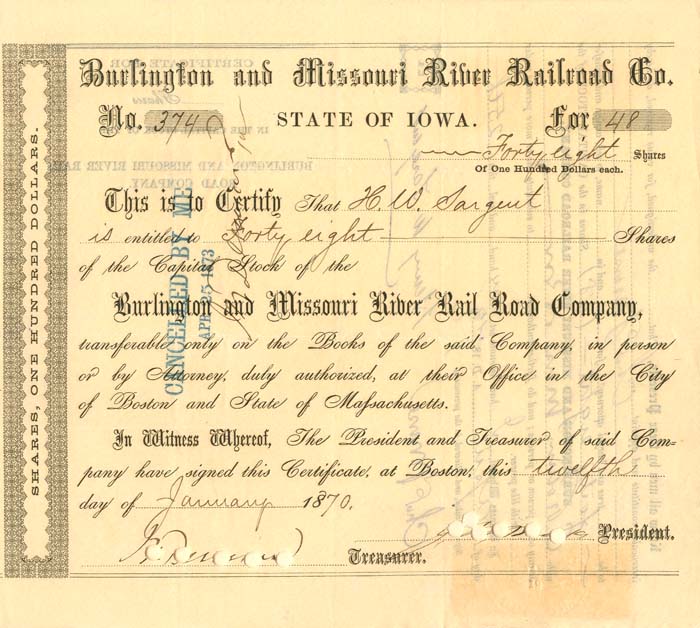 Burlington and Missouri River Railroad Co.
No. 374 STATE OF IOWA. For 48
Forty eight Shares
Of One Hundred Dollars each.
This is to Certify That H. W. Sargent
is entitled to Forty eight Shares
of the Capital Stock of the
Burlington and Missouri River Rail Road Company,
transferable only on the Books of the said Company, in person
or by Attorney, duly authorized, at their Office in the City
of Boston and State of Massachusetts.
In Witness Whereof, The President and Treasurer of said Com-
pany have signed this Certificate, at Boston, this twelfth
day of January 1870.
President.
Treasurer.
SHARES, ONE HUNDRED DOLLARS.
CANCELLED BY ME
APR 25 1873